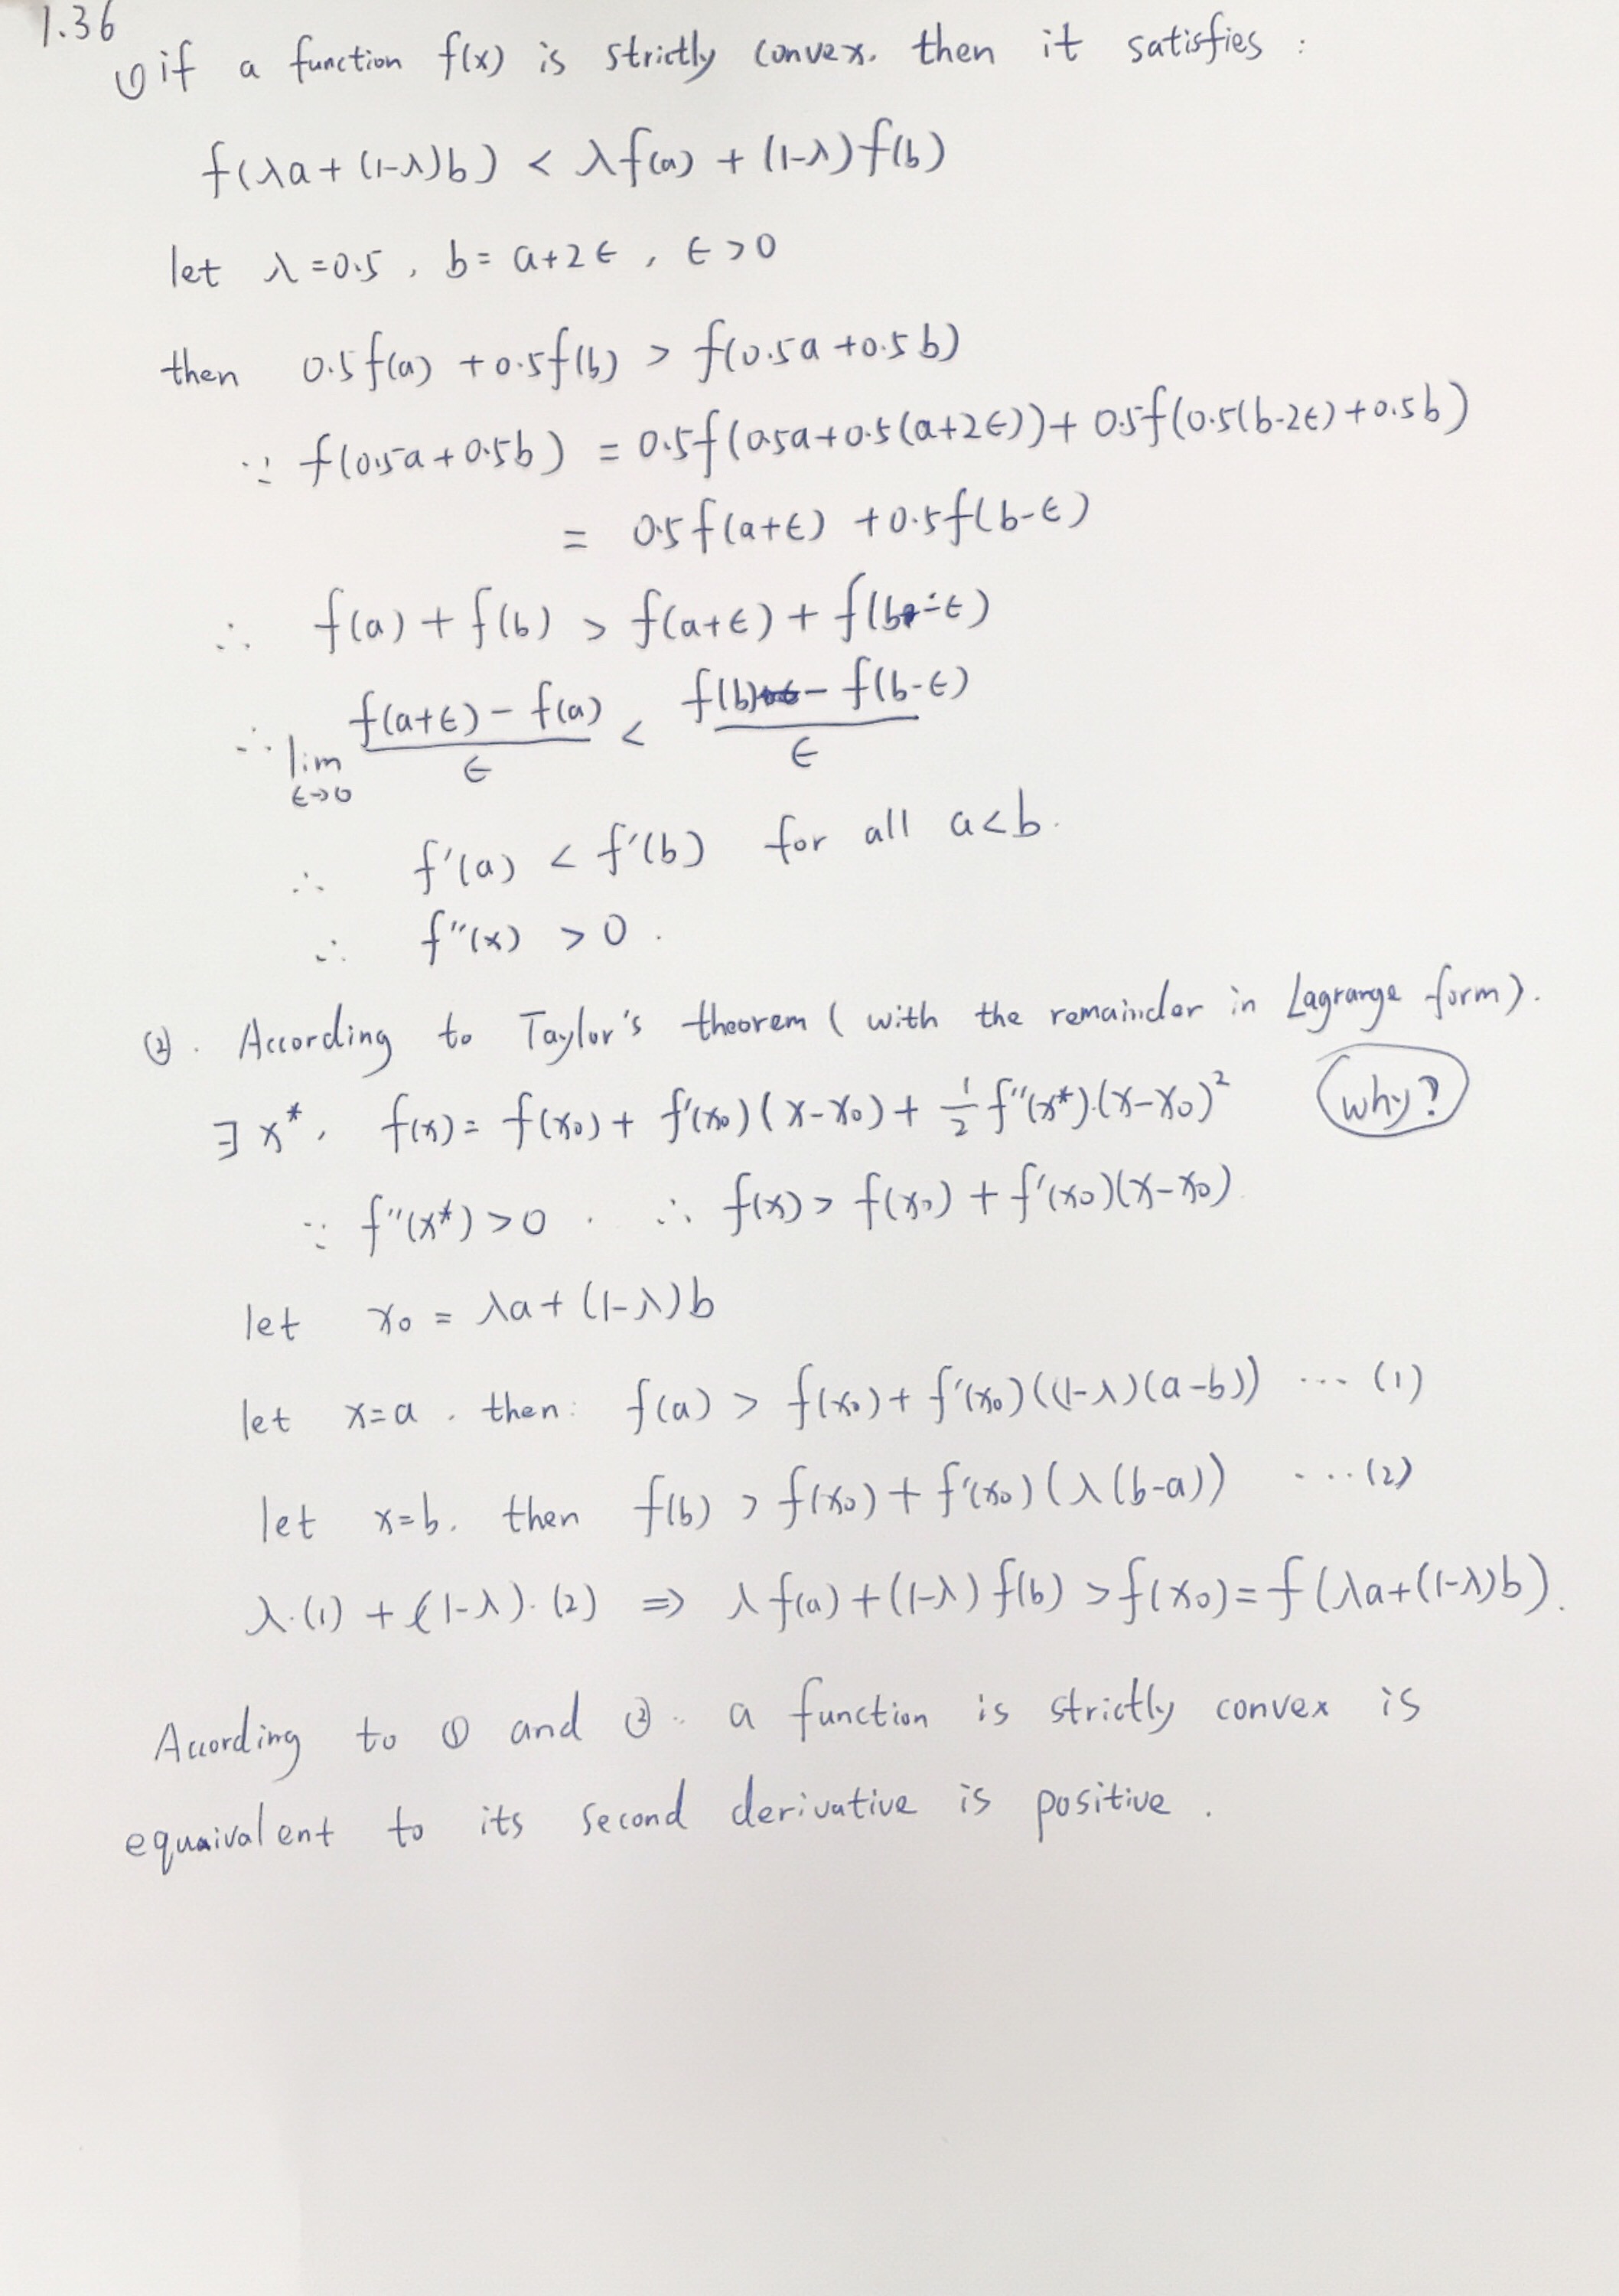 1.36
① if a function f(x) is strictly convex. then it satisfies :
f(λa + (1-λ)b) < λf(a) + (1-λ)f(b)
let λ = 0.5 , b = a+2ϵ , ϵ > 0
then 0.5f(a) + 0.5f(b) > f(0.5a + 0.5b)
∵ f(0.5a + 0.5b) = 0.5f(0.5a + 0.5(a+2ϵ)) + 0.5f(0.5(b-2ϵ) + 0.5b)
= 0.5f(a+ϵ) + 0.5f(b-ϵ)
∴ f(a) + f(b) > f(a+ϵ) + f(b-ϵ)
∴ lim ϵ→0 (f(a+ϵ) - f(a))/ϵ < (f(b) - f(b-ϵ))/ϵ
∴ f'(a) < f'(b) for all a<b.
∴ f''(x) > 0 .
② . According to Taylor's theorem ( with the remainder in Lagrange form).
∃ x*, f(x) = f(x₀) + f'(x₀)(x-x₀) + 1/2 f''(x*)·(x-x₀)² why?
∵ f''(x*) > 0 . ∴ f(x) > f(x₀) + f'(x₀)(x-x₀)
let x₀ = λa + (1-λ)b
let x=a . then: f(a) > f(x₀) + f'(x₀)((1-λ)(a-b)) ... (1)
let x=b. then f(b) > f(x₀) + f'(x₀)(λ(b-a)) ... (2)
λ·(1) + (1-λ)·(2) ⇒ λf(a) + (1-λ)f(b) > f(x₀) = f(λa+(1-λ)b).
Acording to ① and ② . a function is strictly convex is
equaivalent to its second derivative is positive .